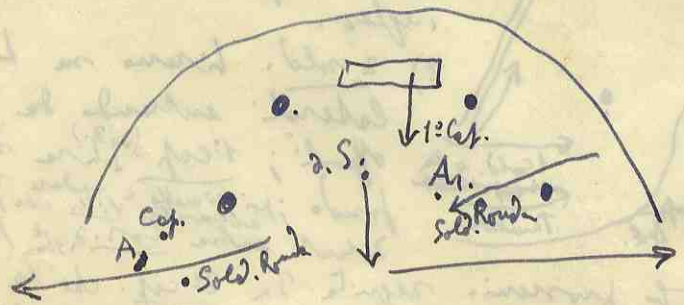 1º Cap.
2. S.
A1.
Sold. Ronda
Cap.
A
Sold. Ronda